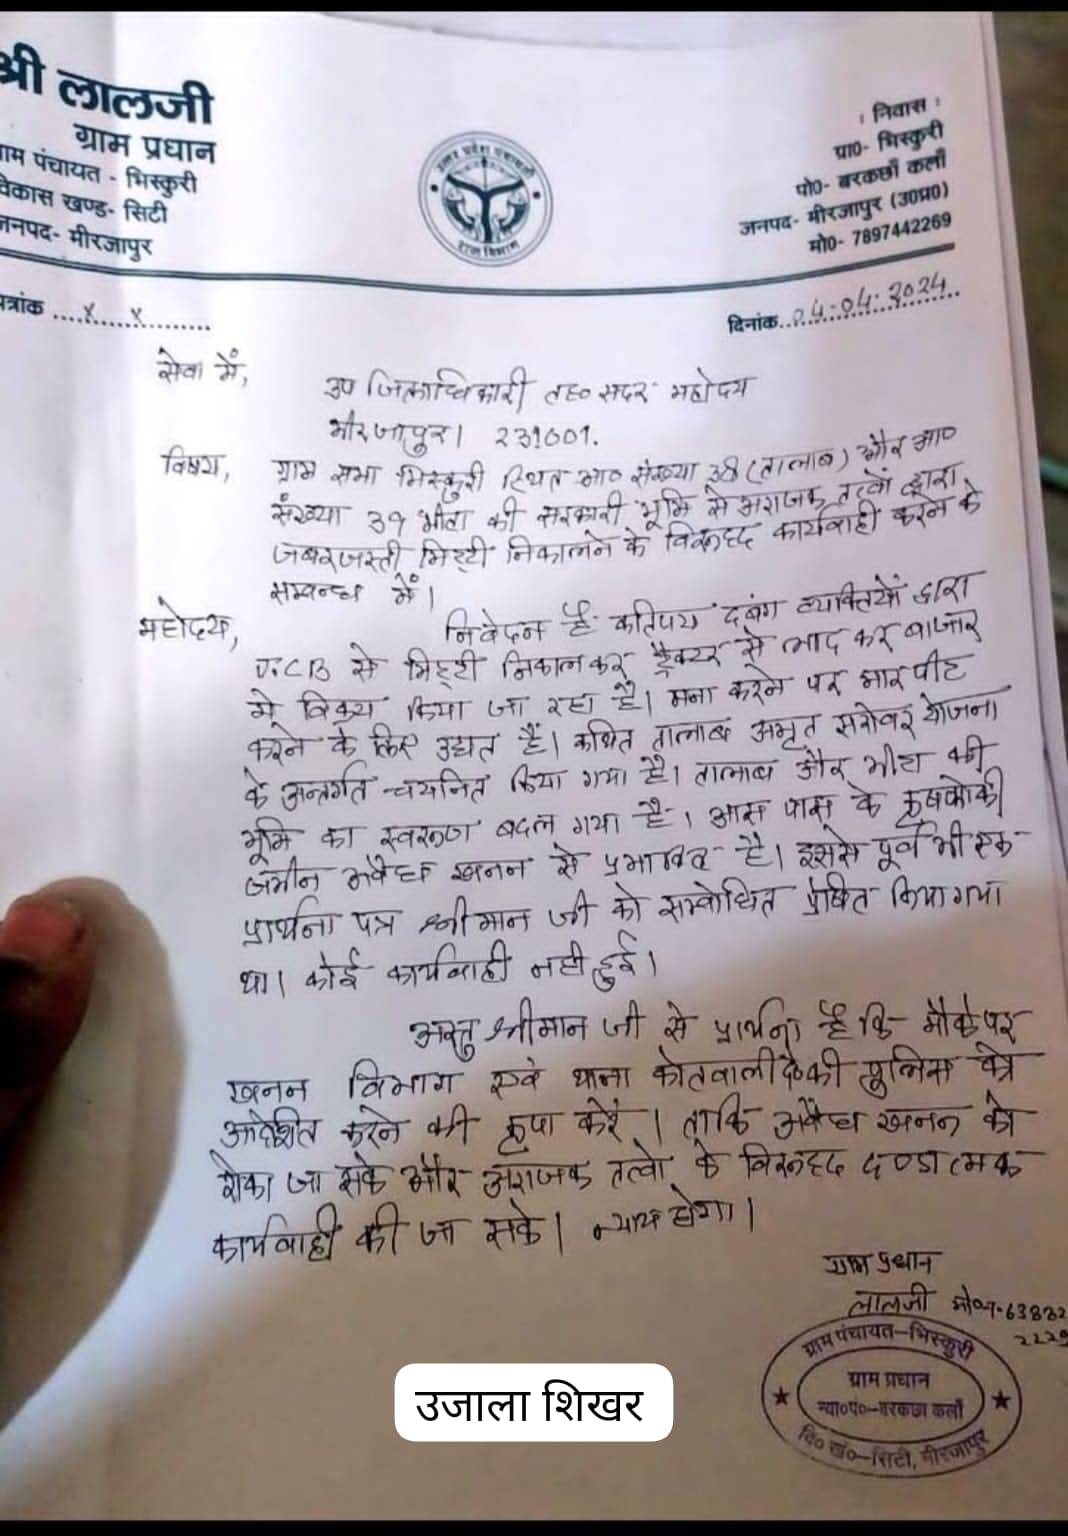 श्री लालजी
ग्राम प्रधान
ग्राम पंचायत - भिस्कुरी
विकास खण्ड- सिटी
जनपद- मीरजापुर
: निवास :
ग्रा0- भिस्कुरी
पो0- बरकछाँ कलाँ
जनपद- मीरजापुर (उ0प्र0)
मो0- 7897442269
पत्रांक ....x....x........
दिनांक..04-04-2024..
सेवा में,
उप जिलाधिकारी तह० सदर महोदय
मीरजापुर। 231001.
विषय, ग्राम सभा भिस्कुरी स्थित आ० संख्या 38 (तालाब) और आ०
संख्या 39 भीटा की सरकारी भूमि से अराजक तत्वों द्वारा
जबरजस्ती मिट्टी निकालने के विरूद्द कार्यवाही करने के
सम्बन्ध में।
महोदय, निवेदन है कतिपय दबंग व्यक्तियों द्वारा
J.CB से मिट्टी निकालकर ट्रैक्टर से लाद कर बाजार
मे विक्रय किया जा रहा है। मना करने पर मारपीट
करने के लिए उद्यत हैं। कथित तालाब अमृत सरोवर योजना
के अन्तर्गत चयनित किया गया है। तालाब और भीटा की
भूमि का स्वरूप बदल गया है। आस पास के कृषकोकी
जमीन अवैध खनन से प्रभावित है। इससे पूर्व भी एक
प्रार्थना पत्र श्रीमान जी को सम्बोधित प्रेषित किया गया
था। कोई कार्यवाही नही हुई।
अस्तु श्रीमान जी से प्रार्थना है कि मौके पर
खनन विभाग एवं थाना कोतवाली की पुलिस को
आदेशित करने की कृपा करें। ताकि अवैध खनन को
रोका जा सके और अराजक तत्वो के विरूद्द दण्डात्मक
कार्यवाही की जा सके। न्याय होगा।
ग्राम प्रधान
लालजी
ग्राम पंचायत-भिस्कुरी
ग्राम प्रधान
न्या०पं०-बरकछा कलाँ
वि० खं०-सिटी, मीरजापुर
उजाला शिखर